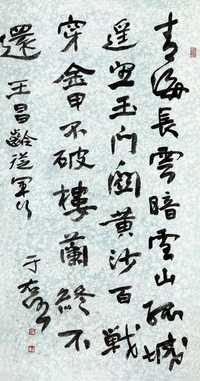 青海長雲暗雪山孤城
遥望玉门關黄沙百戦
穿金甲不破樓蘭終不
還
王昌齡從軍行
于右任